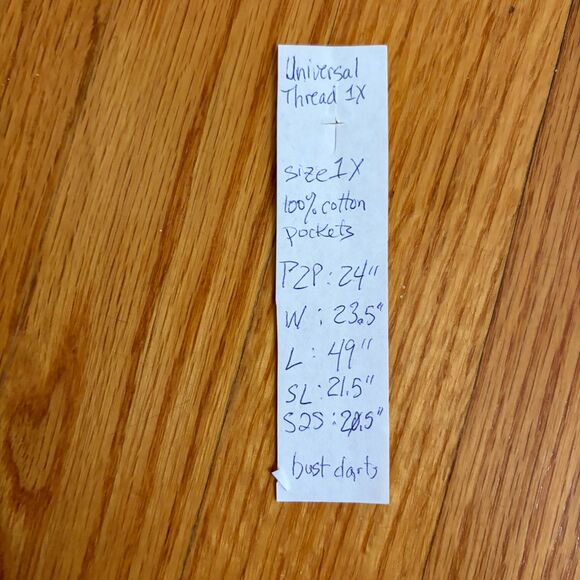 Universal
Thread 1X
size 1X
100% cotton
pockets
P2P: 24"
W: 23.5"
L: 49"
SL: 21.5"
S2S: 20.5"
bust darts